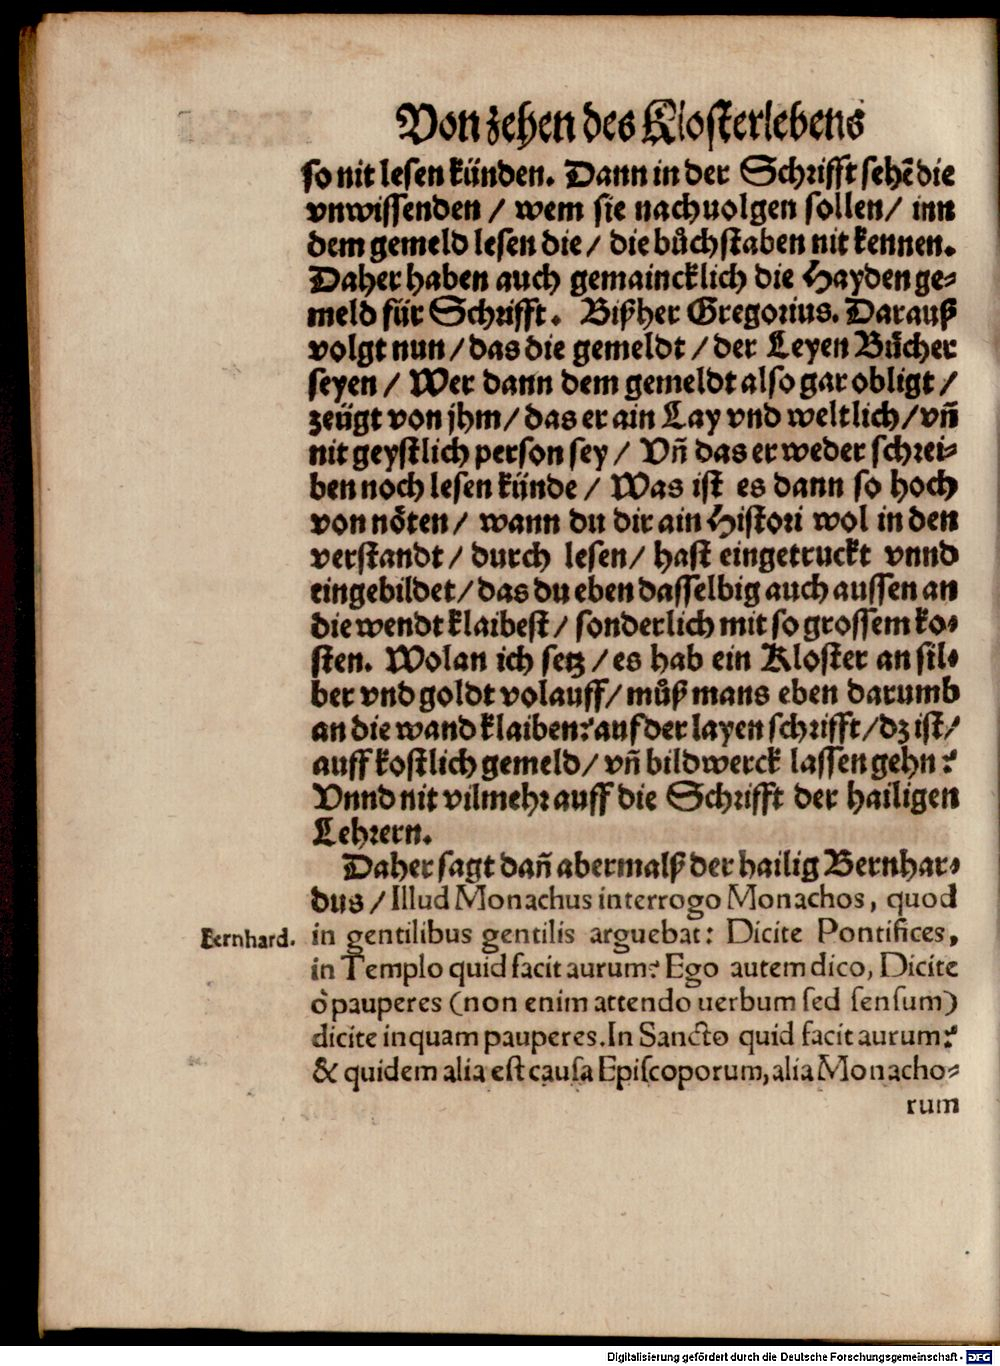 Von zehen des Klosterlebens
so nit lesen künden. Dann in der Schrifft sehē die
vnwissenden / wem sie nachuolgen sollen / inn
dem gemeld lesen die / die bůchstaben nit kennen.
Daher haben auch gemaincklich die Hayden ge-
meld für Schrifft. Bißher Gregorius. Darauß
volgt nun / das die gemeldt / der Leyen Bücher
seyen / Wer dann dem gemeldt also gar obligt /
zeügt von jhm / das er ain Lay vnd weltlich / vñ
nit geystlich person sey / Vñ das er weder schrei-
ben noch lesen künde / Was ist es dann so hoch
von nöten / wann du dir ain Histori wol in den
verstandt / durch lesen / hast eingetruckt vnnd
eingebildet / das du eben dasselbig auch aussen an
die wendt klaibest / sonderlich mit so grossem ko-
sten. Wolan ich setz / es hab ein Kloster an sil-
ber vnd goldt volauff / můß mans eben darumb
an die wand klaiben? auf der layen schrifft / dz ist /
auff kostlich gemeld / vñ bildwerck lassen gehn?
Vnnd nit vilmehr auff die Schrifft der hailigen
Lehrern.
Daher sagt dañ abermalß der hailig Bernhar-
dus / Illud Monachus interrogo Monachos, quod
Bernhard. in gentilibus gentilis arguebat: Dicite Pontifices,
in Templo quid facit aurum? Ego autem dico, Dicite
ò pauperes (non enim attendo uerbum sed sensum)
dicite inquam pauperes. In Sancto quid facit aurum?
& quidem alia est causa Episcoporum, alia Monacho-
rum
Digitalisierung gefördert durch die Deutsche Forschungsgemeinschaft - DFG